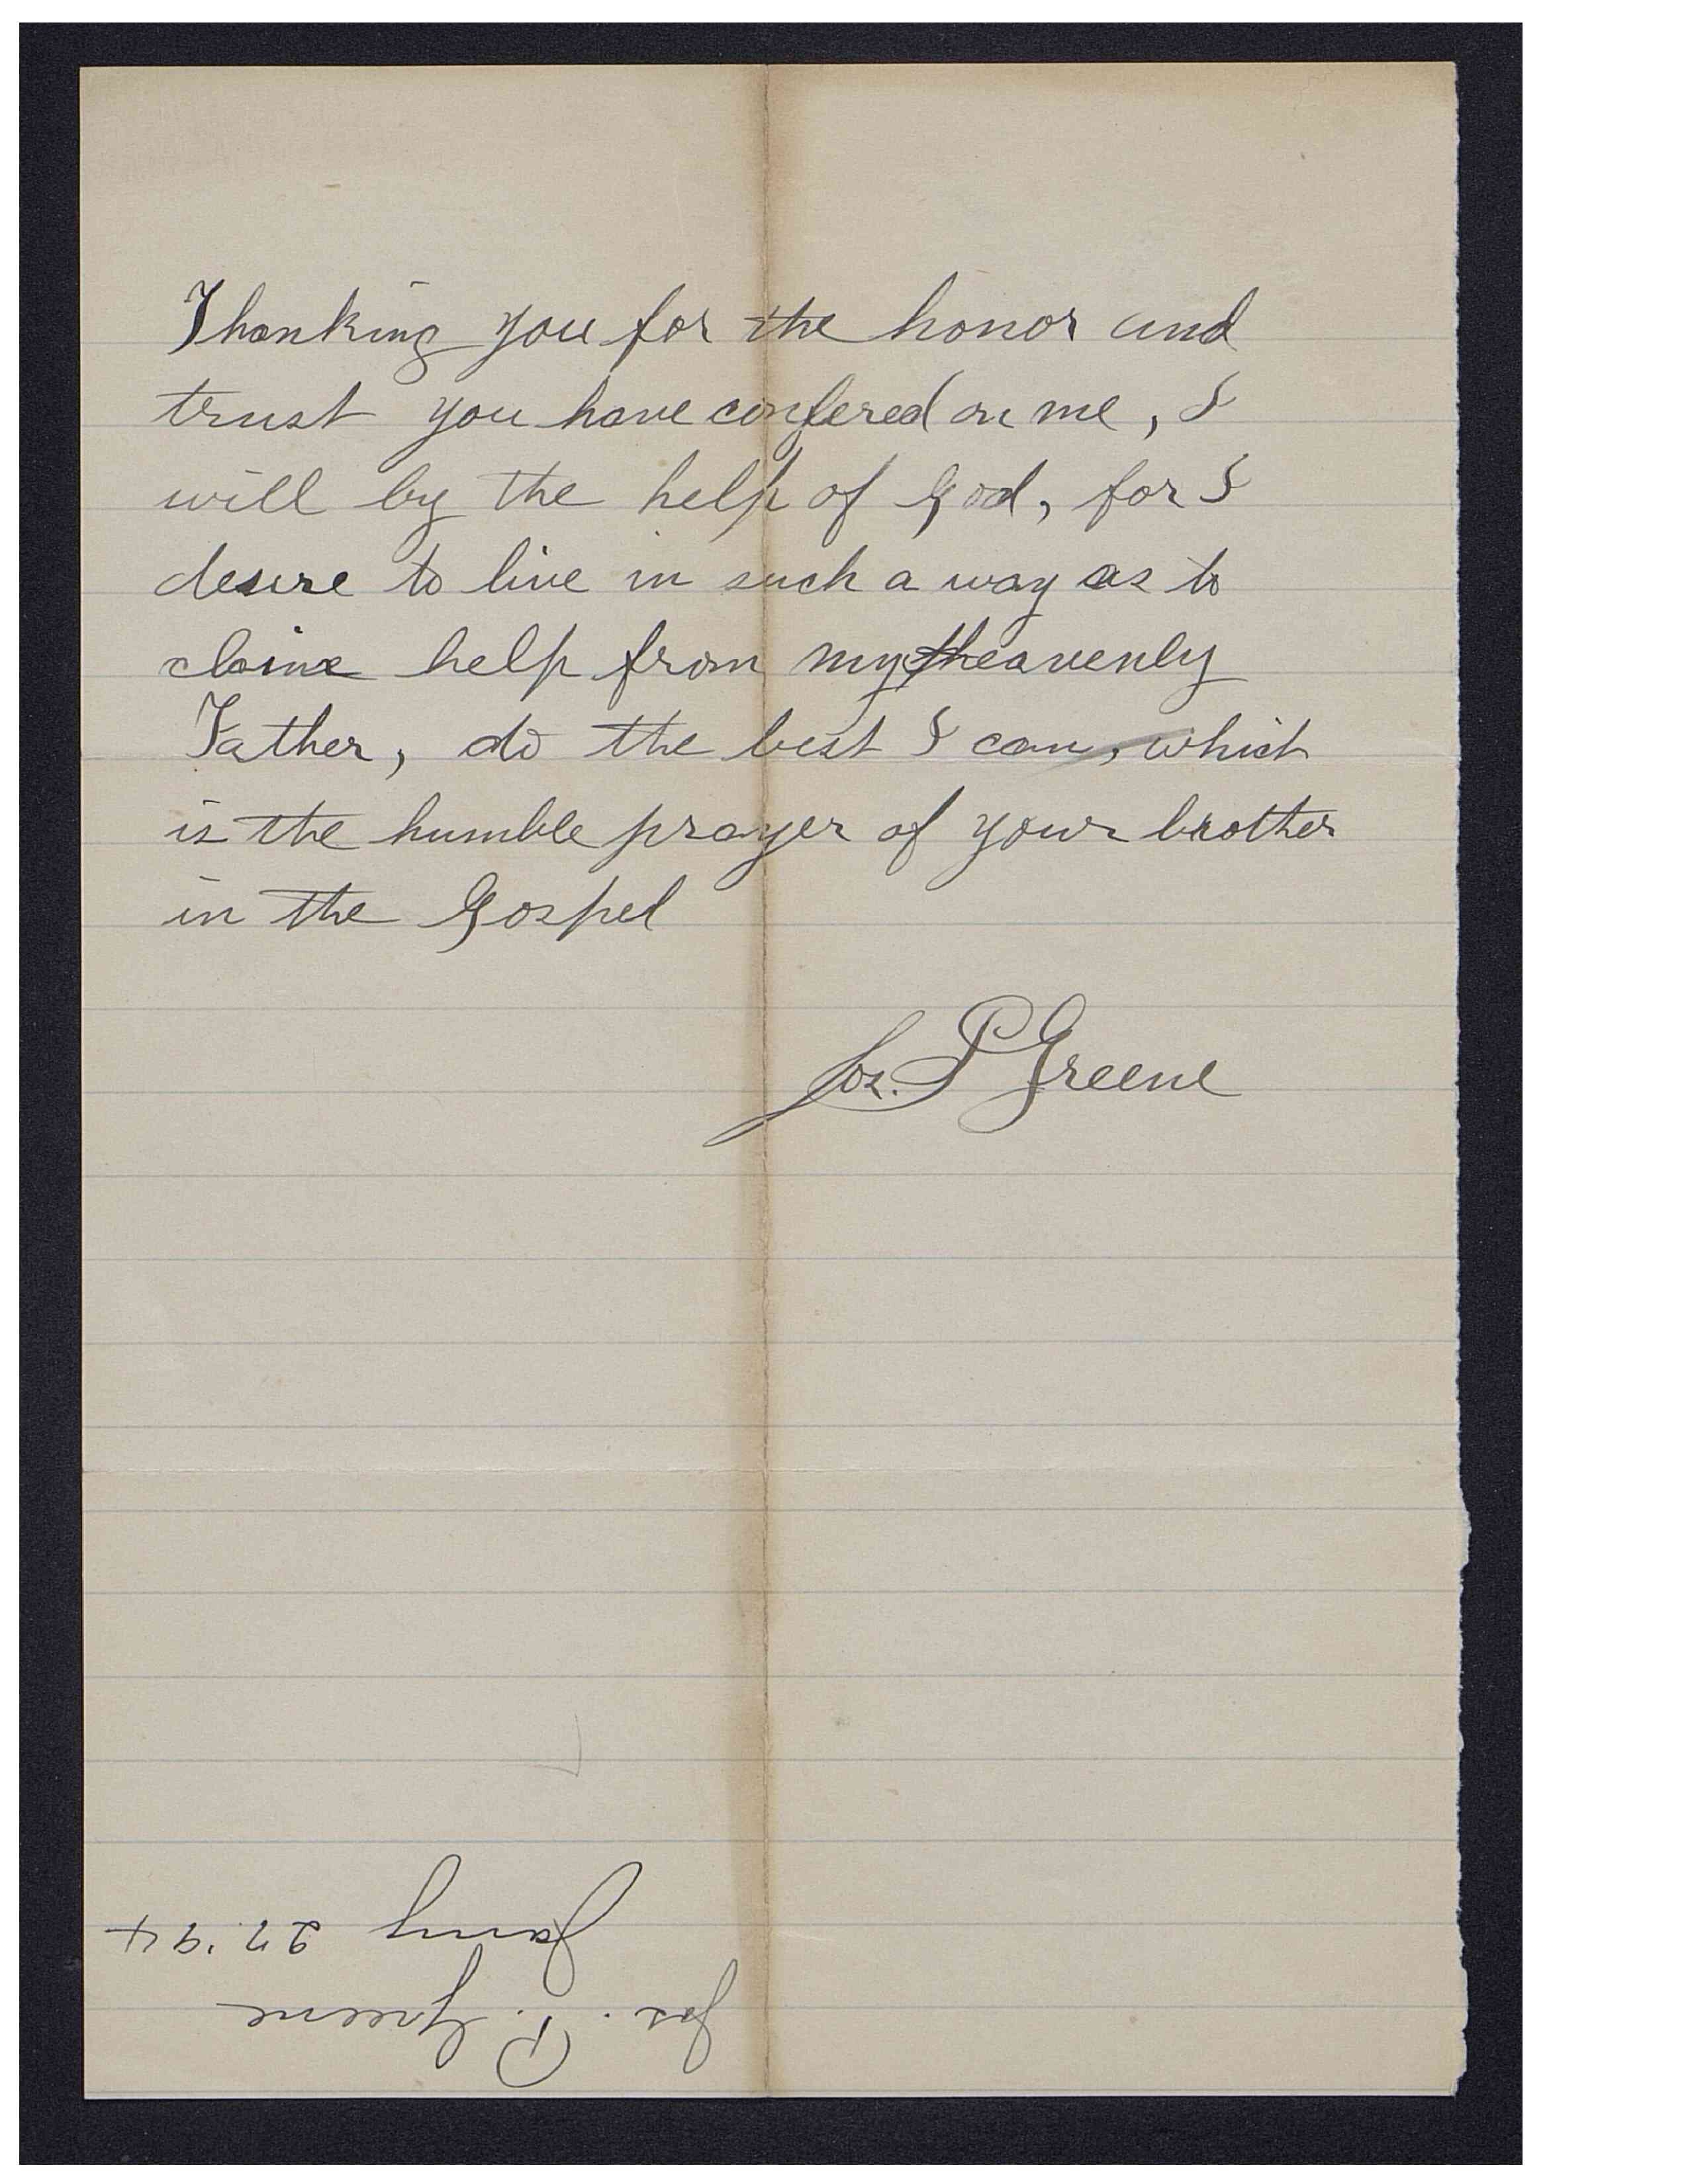 Thanking you for the honor and
trust you have confered on me, I
will by the help of God, for I
desire to live in such a way as to
claime help from my heavenly
Father, do the best I can, which
is the humble prayer of your brother
in the Gospel
Jos. P Greene
Jos. P. Greene
Jany 27.94